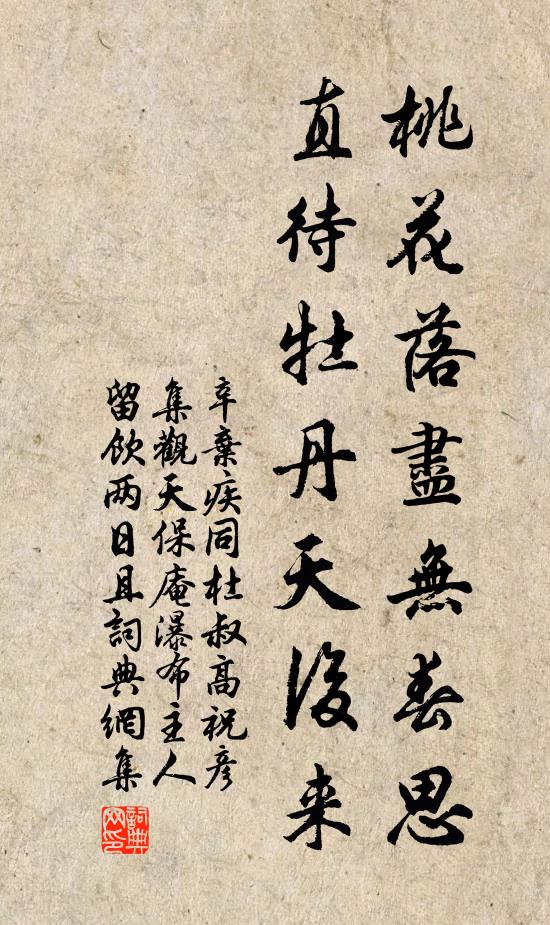 桃花落盡無春思
直待牡丹天後来
辛棄疾同杜叔高祝彦
集觀天保庵瀑布主人
留飲两日且詞典網集
詞典网印